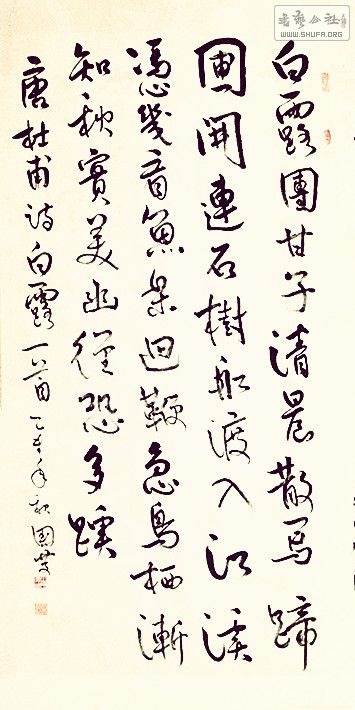 書藝公社
WWW.SHUFA.ORG
白露團甘子清晨散馬蹄
圃開連石樹船渡入江溪
憑幾看魚樂迴鞭急鳥栖漸
知秋實美幽徑恐多蹊
唐杜甫詩白露一首乙未年秋國